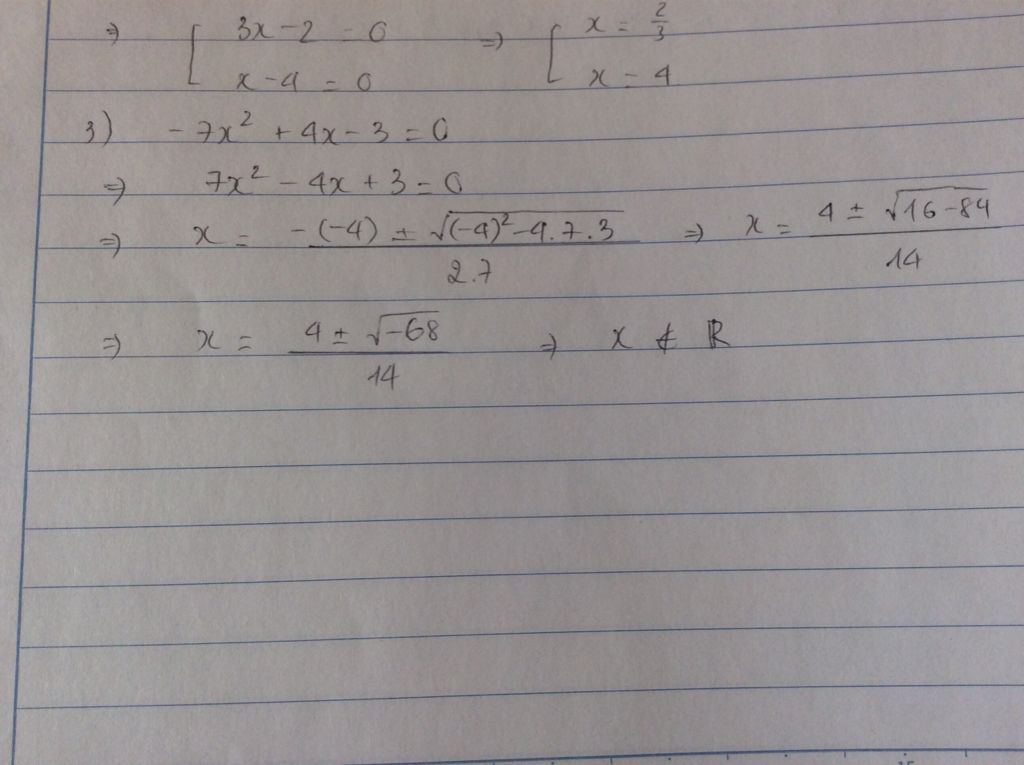 ⇒ [ 3x - 2 = 0 ⇒ [ x = 2/3
x - 4 = 0 x = 4
3) - 7x² + 4x - 3 = 0
⇒ 7x² - 4x + 3 = 0
⇒ x = (-(-4) ± √((-4)² - 4.7.3)) / 2.7 ⇒ x = (4 ± √(16 - 84)) / 14
⇒ x = (4 ± √(-68)) / 14 ⇒ x ∉ ℝ